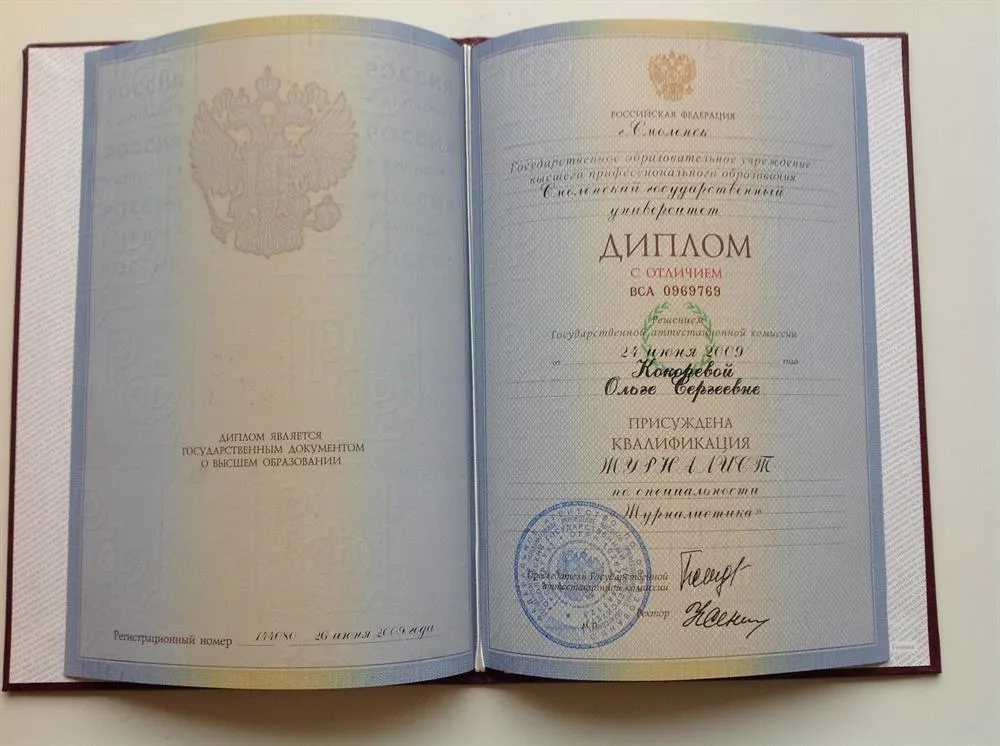 ДИПЛОМ ЯВЛЯЕТСЯ
ГОСУДАРСТВЕННЫМ ДОКУМЕНТОМ
О ВЫСШЕМ ОБРАЗОВАНИИ
Регистрационный номер 144080 26 июня 2009 года
РОССИЙСКАЯ ФЕДЕРАЦИЯ
г. Смоленск
Государственное образовательное учреждение
высшего профессионального образования
Смоленский государственный
университет
ДИПЛОМ
С ОТЛИЧИЕМ
ВСА 0969769
Решением
Государственной аттестационной комиссии
от 24 июня 2009 года
Кокоревой
Ольге Сергеевне
ПРИСУЖДЕНА
КВАЛИФИКАЦИЯ
ЖУРНАЛИСТ
по специальности
Журналистика»
Председатель Государственной
аттестационной комиссии
Ректор
М.П.